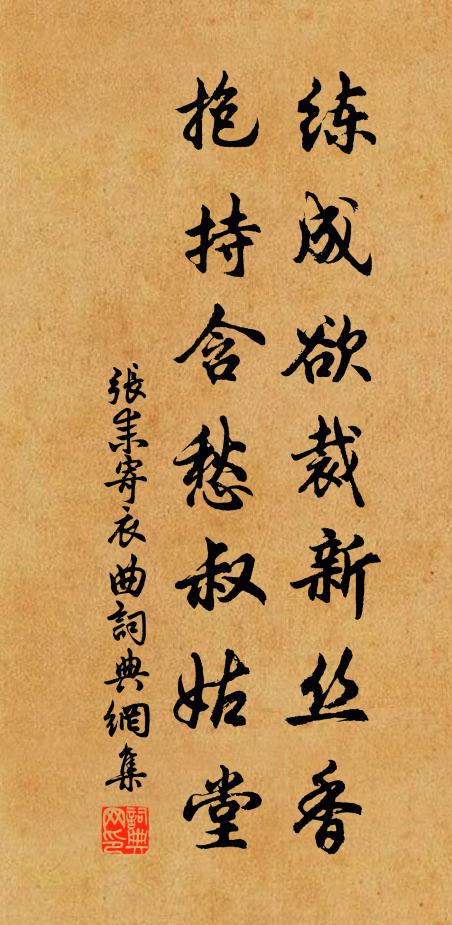 练成欲裁新丝香
抱持含愁叔姑堂
張耒寄衣曲詞典網集
詞典网印